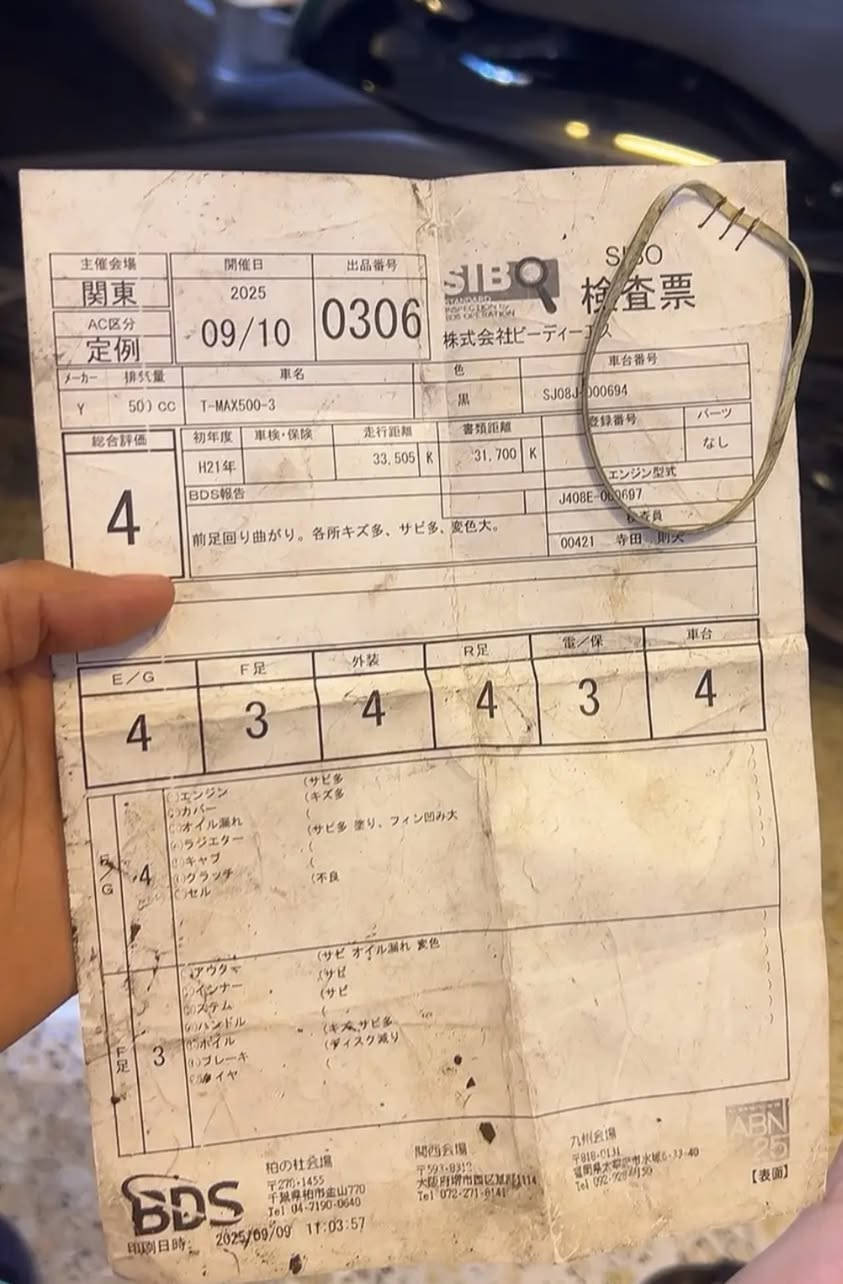 主催会場
関東
AC区分
定例
開催日
2025
09/10
出品番号
0306
SIBO
STANDARD
INSPECTION by
BDS OPERATION
SIBO
検査票
株式会社ビーディーエス
メーカー 排気量 車名 色 車台番号
Y cc T-MAX500-3 黒 SJ08J-000694
総合評価
4
初年度 車検・保険 走行距離 書類距離 登録番号 パーツ
H21年 33,505 K 31,700 K なし
エンジン型式
J408E-000697
BDS報告
前足回り曲がり。各所キズ多、サビ多、変色大。
検査員
00421 寺田
E/G F足 外装 R足 電/保 車台
4 3 4 4 3 4
E/G 4
エンジン (サビ多
カバー (キズ多
オイル漏れ (
ラジエター (サビ多 塗り、フィン凹み大
キャブ (
クラッチ (
セル (不良
F足 3
アウター (サビ オイル漏れ 変色
インナー (サビ
ステム (サビ
ハンドル (
ホイル (キズ、サビ多
ブレーキ (ディスク減り
タイヤ (
BDS
柏の杜会場
〒270-1455
千葉県柏市金山770
Tel 04-7190-0640
関西会場
〒593-8312
Tel 072-271-8141
九州会場
〒818-0131
ABN
25
【表面】
印刷日時: 2025/09/09 11:03:57